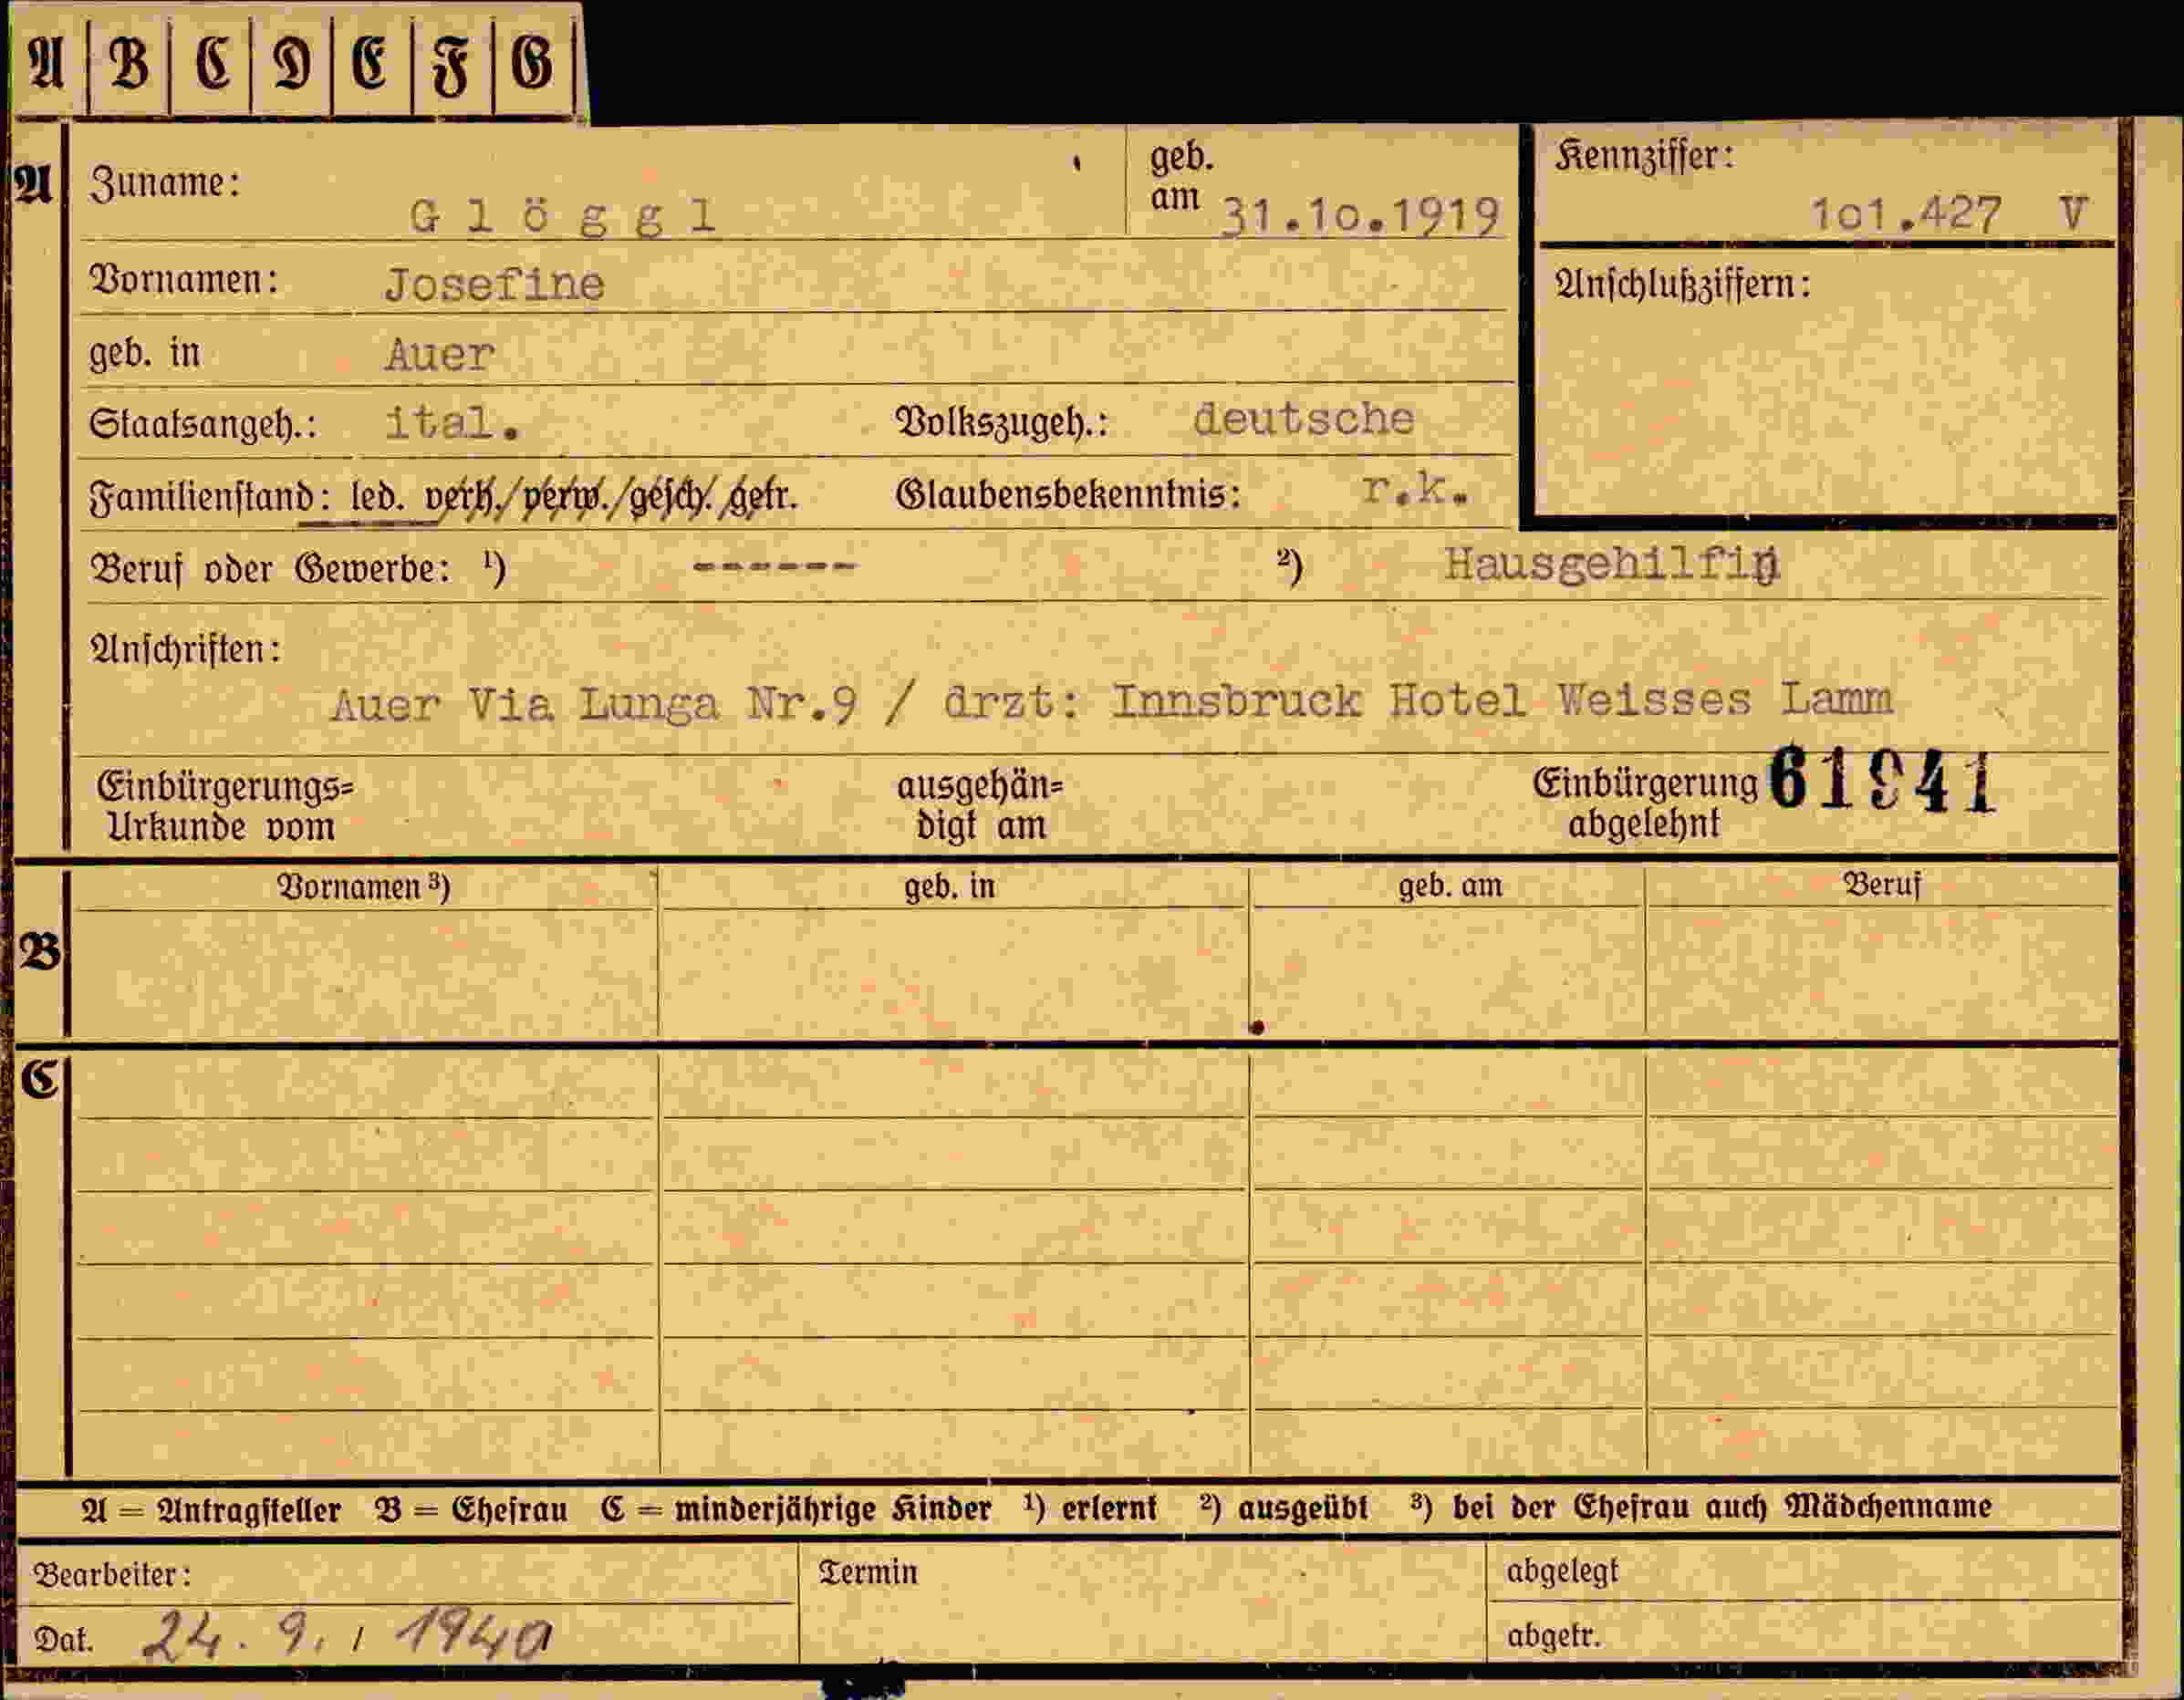 A B C D E F G
A Zuname: Glöggl geb. am 31.10.1919 Kennziffer: 101.427 V
Vornamen: Josefine Anschlußziffern:
geb. in Auer
Staatsangeh.: ital. Volkszugeh.: deutsche
Familienstand: led. verh./verw./gesch./getr. Glaubensbekenntnis: r.k.
Beruf oder Gewerbe: ¹) ------ ²) Hausgehilfin
Anschriften:
Auer Via Lunga Nr.9 / drzt: Innsbruck Hotel Weisses Lamm
Einbürgerungs= ausgehän= Einbürgerung 61941
Urkunde vom digt am abgelehnt
Vornamen ³) geb. in geb. am Beruf
B
C
A = Antragsteller B = Ehefrau C = minderjährige Kinder ¹) erlernt ²) ausgeübt ³) bei der Ehefrau auch Mädchenname
Bearbeiter: Termin abgelegt
Dat. 24. 9. / 1940 abgetr.